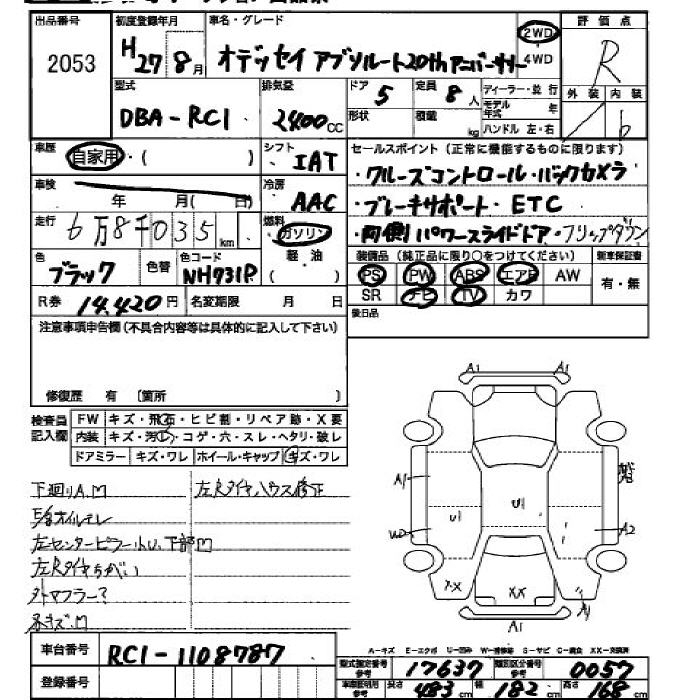 出品番号
2053
初度登録年月
H27 8月
車名・グレード
オデッセイ アブソルート20thアニバーサリー
2WD
4WD
評価点
R
外装 内装
b
型式
DBA-RC1
排気量
2400cc
ドア 5
形状
定員 8人
積載 kg
ディーラー・並行
モデル年式 年
ハンドル 左・右
車歴
自家用・( )
シフト
IAT
セールスポイント(正常に機能するものに限ります)
・クルーズコントロール・バックカメラ
・ブレーキサポート・ETC
・両側パワースライドドア・フリップダウン
車検
年 月( 日)
冷房
AAC
走行
6万8千035km
燃料
ガソリン
軽・油
( )
色
ブラック
色替
色コード
NH731P
装備品(純正品に限り○をつけてください)
新車保証書
PS PW ABS エアB AW
SR ナビ TV カワ
有・無
R券 14,420円
名変期限 月 日
後日品
注意事項申告欄(不具合内容等は具体的に記入して下さい)
修復歴 有〔箇所 〕
検査員記入欄
FW キズ・飛石・ヒビ割・リペア跡・X要
内装 キズ・汚れ・コゲ・穴・スレ・ヘタリ・破レ
ドアミラー キズ・ワレ ホイール・キャップ キズ・ワレ
下廻りA.M
左Rタイヤハウス修正
左Rタイヤちがい
外マフラー?
A1 A1
A1
U1
U1
A2
XX
A1
車台番号
RC1-1108787
登録番号
A-キズ E-エクボ U-凹み W-補修跡 S-サビ C-腐食 XX-交換済
型式指定番号 参考
17637
類別区分番号 参考
0057
長さ 483cm
幅 182cm
高さ 168cm